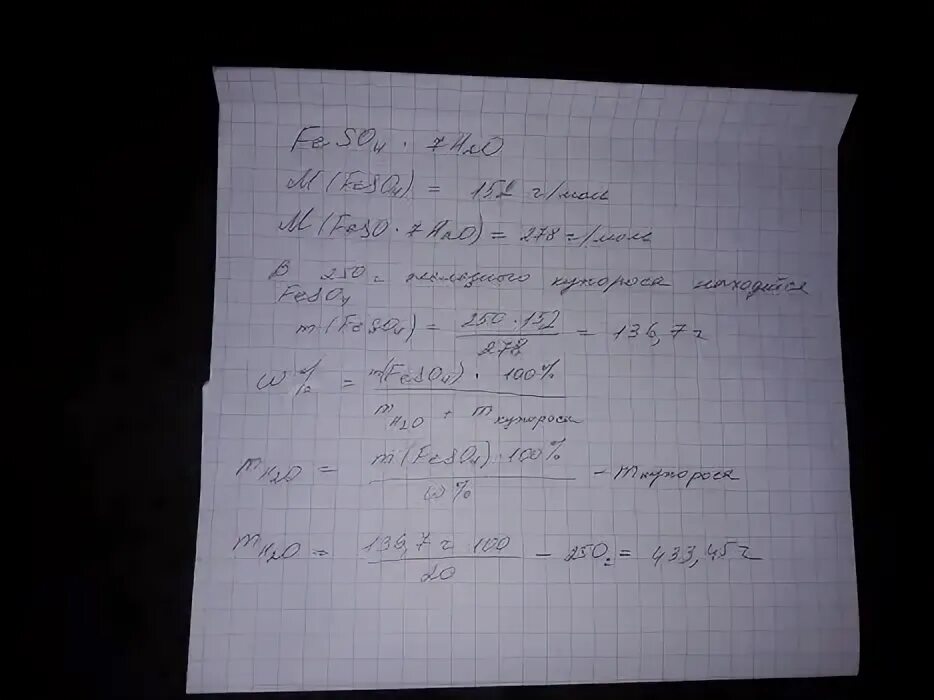 FeSO₄ · 7H₂O
M (FeSO₄) = 152 г/моль
M (FeSO · 7H₂O) = 278 г/моль
В 250 г железного купороса находится
FeSO₄
m (FeSO₄) = 250 · 152 / 278 = 136,7 г
ω% = m(FeSO₄) · 100% / m H₂O + m купороса
m H₂O = m (FeSO₄) · 100% / ω% - m купороса
m H₂O = 136,7 г · 100 / 20 - 250 = 433,45 г